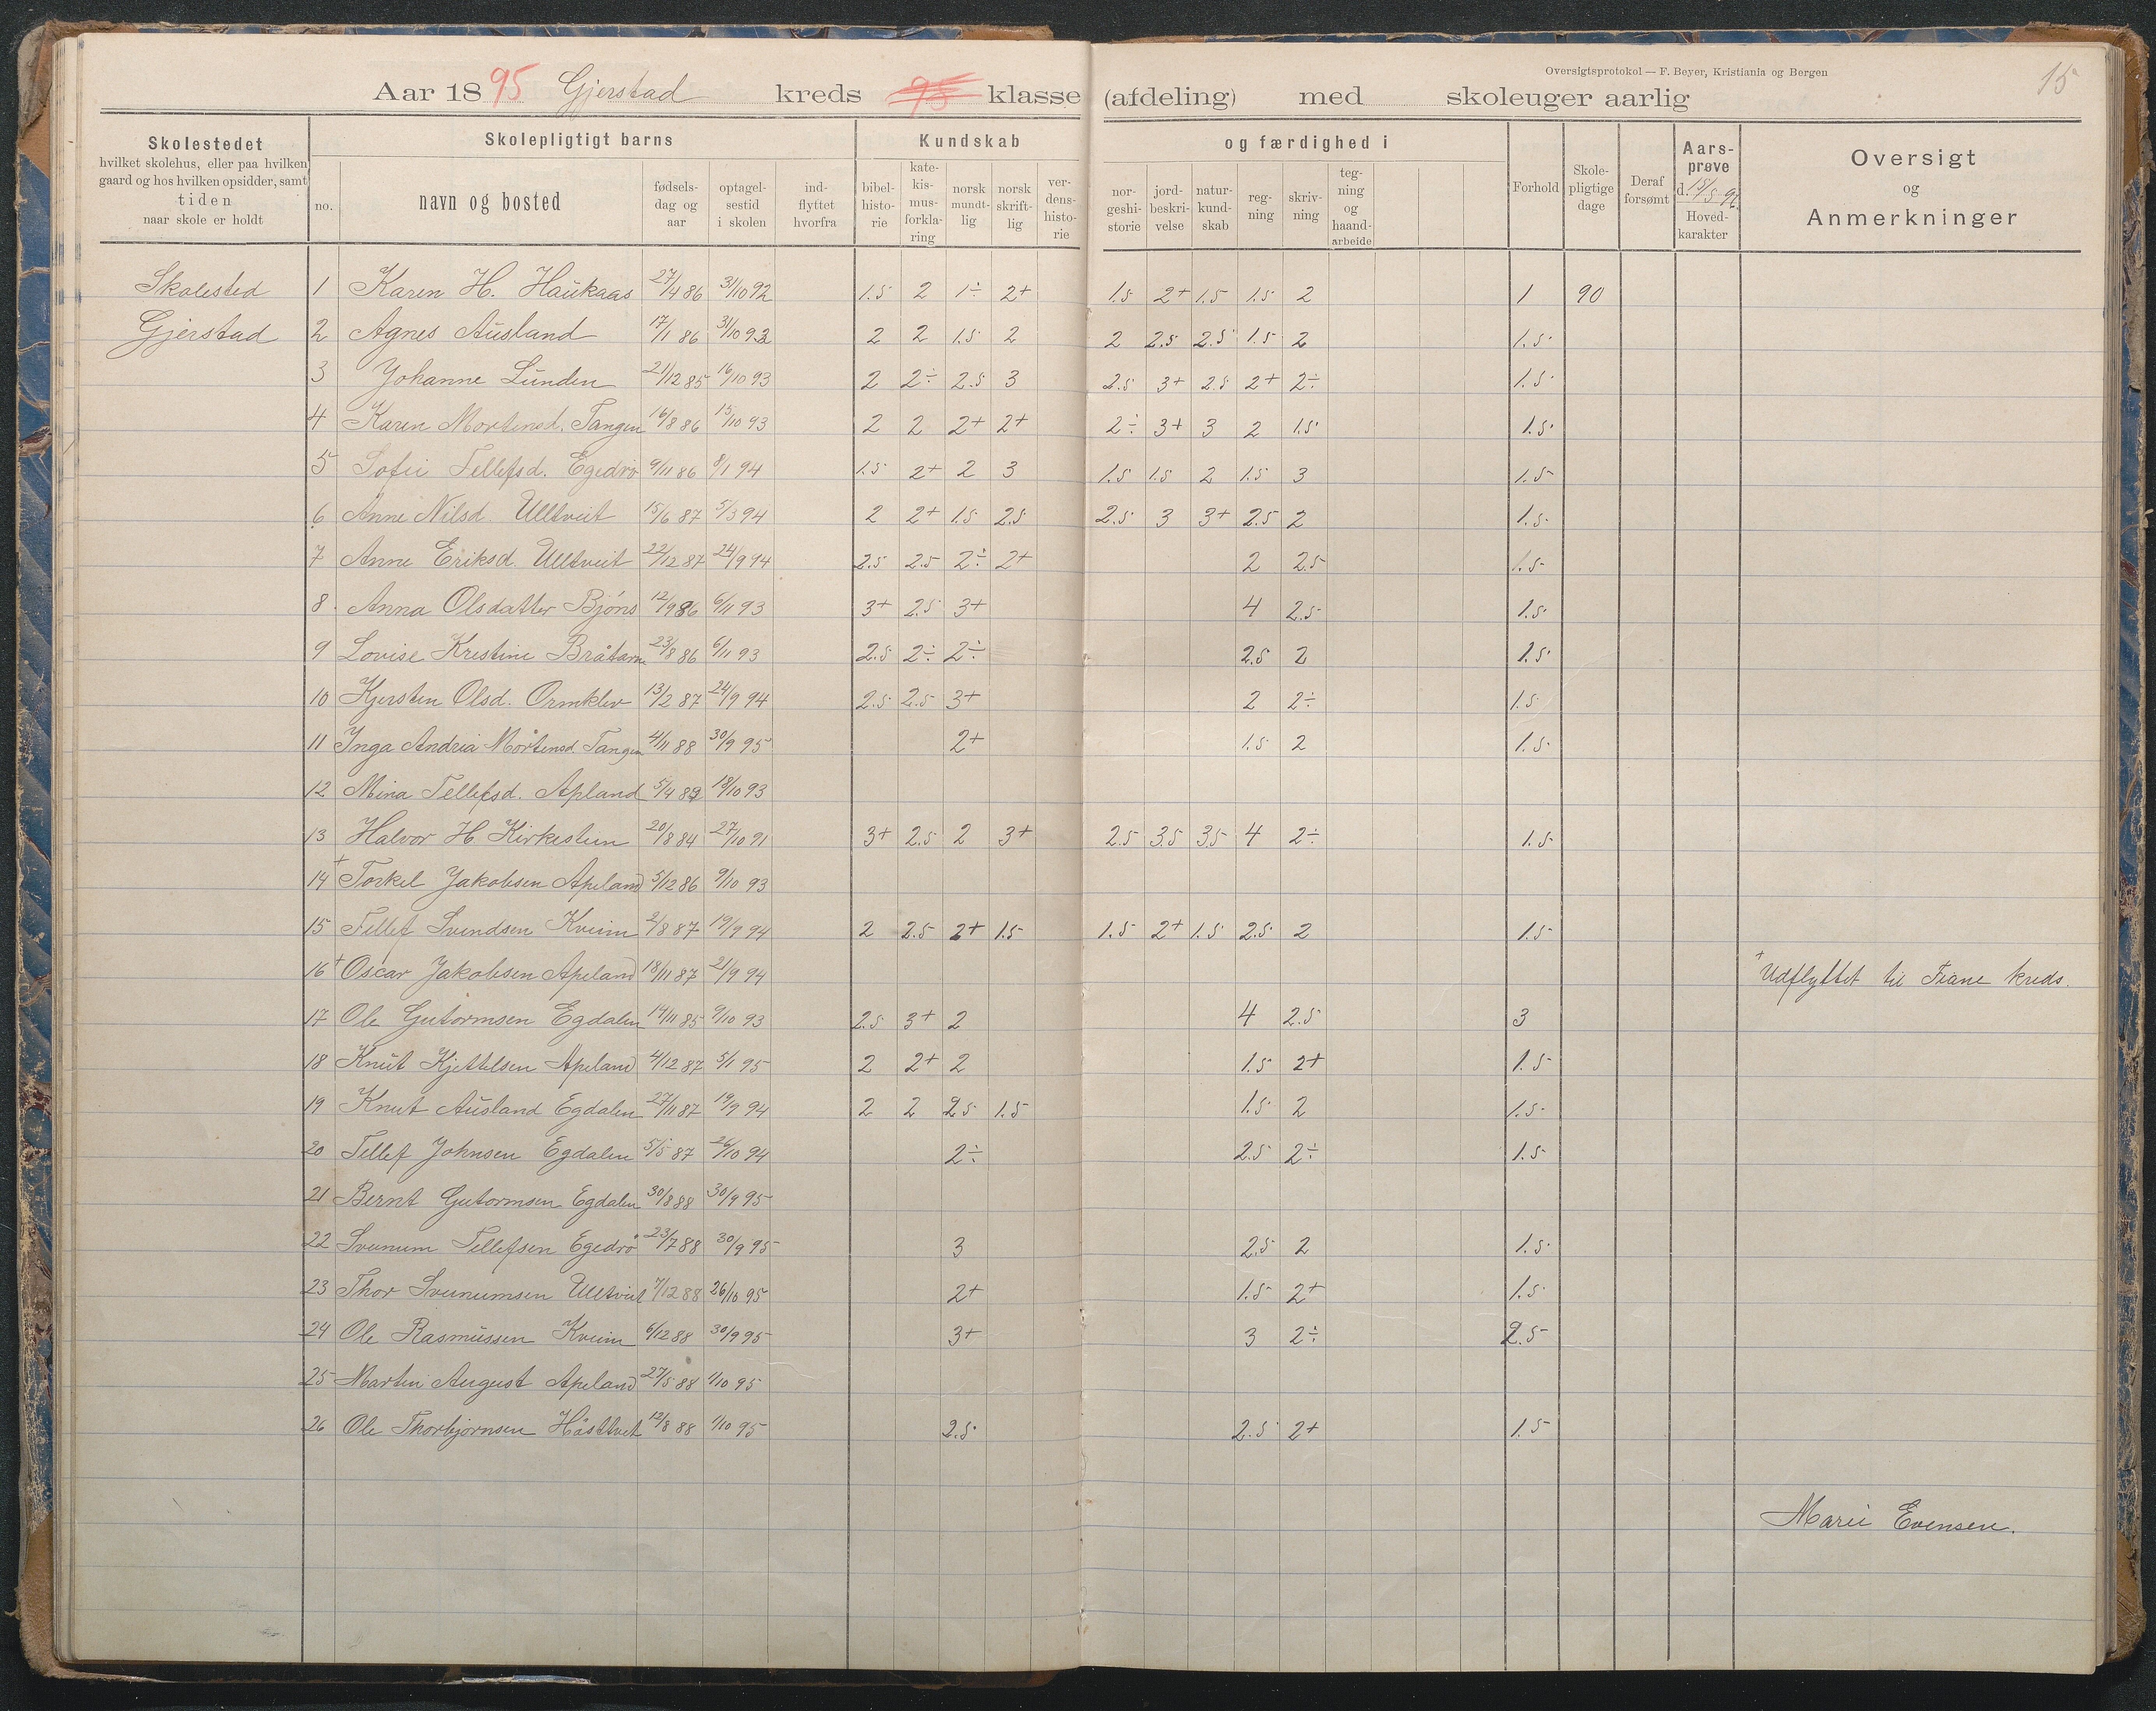 Oversigtsprotokol — F. Beyer, Kristiania og Bergen
15
Aar 1895 Gjerstad kreds 95 klasse (afdeling) med skoleuger aarlig
Skolestedet
hvilket skolehus, eller paa hvilken
gaard og hos hvilken opsidder, samt
tiden
naar skole er holdt
Skolepligtigt barns
no.
navn og bosted
fødsels-
dag og
aar
optagel-
sestid
i skolen
ind-
flyttet
hvorfra
Kundskab
bibel-
histo-
rie
kate-
kis-
mus-
forkla-
ring
norsk
mundt-
lig
norsk
skrift-
lig
ver-
dens-
histo-
rie
og færdighed i
nor-
geshi-
storie
jord-
beskri-
velse
natur-
kund-
skab
reg-
ning
skriv-
ning
teg-
ning
og
haand-
arbeide
Forhold
Skole-
pligtige
dage
Deraf
forsømt
Aars-
prøve
d. 15/5 96
Hoved-
karakter
Oversigt
og
Anmerkninger
Skolested 1 Karen H. Haukaas 27/4 86 31/10 92 1.5 2 1÷ 2+ 1.5 2+ 1.5 1.5 2 1 90
Gjerstad 2 Agnes Ausland 17/1 86 31/10 93 2 2 1.5 2 2 2.5 2.5 1.5 2 1.5
3 Johanne Lunden 21/12 85 16/10 93 2 2÷ 2.5 3 2.5 3+ 2.5 2+ 2÷ 1.5
4 Karen Mortensd. Tangen 16/8 86 15/10 93 2 2 2+ 2+ 2÷ 3+ 3 2 1.5 1.5
5 Sofie Tellefsd. Egedrø 9/11 86 8/1 94 1.5 2+ 2 3 1.5 1.5 2 1.5 3 1.5
6 Anne Nilsd. Ulltveit 15/6 87 5/3 94 2 2+ 1.5 2.5 2.5 3 3+ 2.5 2 1.5
7 Anne Eriksd. Ulltveit 22/12 87 24/9 94 2.5 2.5 2÷ 2+ 2 2.5 1.5
8 Anna Olsdatter Bjöns 12/9 86 6/11 93 3+ 2.5 3+ 4 2.5 1.5
9 Lovise Kristine Bråtane 23/8 86 6/11 93 2.5 2÷ 2÷ 2.5 2 1.5
10 Kjersten Olsd. Ormklev 13/2 87 24/9 94 2.5 2.5 3+ 2 2÷ 1.5
11 Inga Andria Mortensd. Tangen 4/11 88 30/9 95 2+ 1.5 2 1.5
12 Mina Tellefsd. Apland 18/10 93
13 Halvor H. Kirkestein 20/8 84 27/10 91 3+ 2.5 2 3+ 2.5 3.5 3.5 4 2÷ 1.5
14+ Torkel Jakobsen Apeland 5/12 86 9/10 93
15 Tellef Svendsen Kveim 2/8 87 19/9 94 2 2.5 2+ 1.5 1.5 2+ 1.5 2.5 2 1.5
16+ Oscar Jakobsen Apeland 18/11 87 21/9 94 + Udflyttet til Fiane kreds.
17 Ole Gutormsen Egdalen 14/11 85 9/10 93 2.5 3+ 2 4 2.5 3
18 Knut Kjettelsen Apeland 4/12 87 5/1 95 2 2+ 2 1.5 2+ 1.5
19 Knut Ausland Egdalen 27/11 87 19/9 94 2 2 2.5 1.5 1.5 2 1.5
20 Tellef Johnsen Egdalen 5/5 87 26/10 94 2÷ 2.5 2÷ 1.5
21 Bernt Gutormsen Egdalen 30/8 88 30/9 95
22 Svenum Tellefsen Egedrø 23/7 88 30/9 95 3 2.5 2 1.5
23 Thor Svenumsen Ulltveit 7/12 88 26/10 95 2+ 1.5 2+ 1.5
24 Ole Rasmussen Kveim 6/12 88 30/9 95 3+ 3 2÷ 2.5
25 Martin August Apeland 27/5 88 1/10 95
26 Ole Thorbjørnsen Høsttvet 12/8 88 1/10 95 2.5 2.5 2+ 1.5
Marie Evensen.